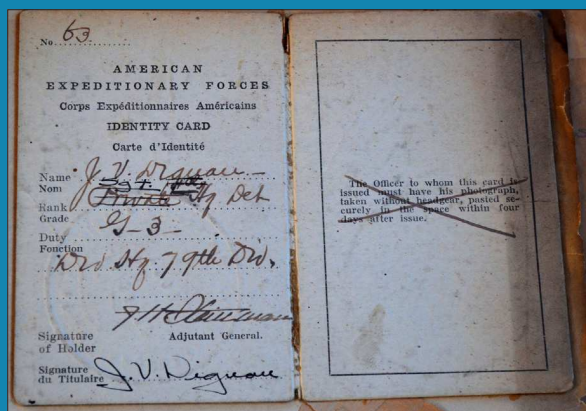 No. 63
AMERICAN
EXPEDITIONARY FORCES
Corps Expéditionnaires Américains
IDENTITY CARD
Carte d'Identité
Name J. V. Dignan
Nom
Sgt.
Rank Hq Det
Grade
G-3-
Duty
Fonction
Div Hq 79th Div.
Adjutant General.
Signature
of Holder
Signature
du Titulaire J. V. Dignan
The Officer to whom this card is
issued must have his photograph,
taken without headgear, pasted se-
curely in the space within four
days after issue.